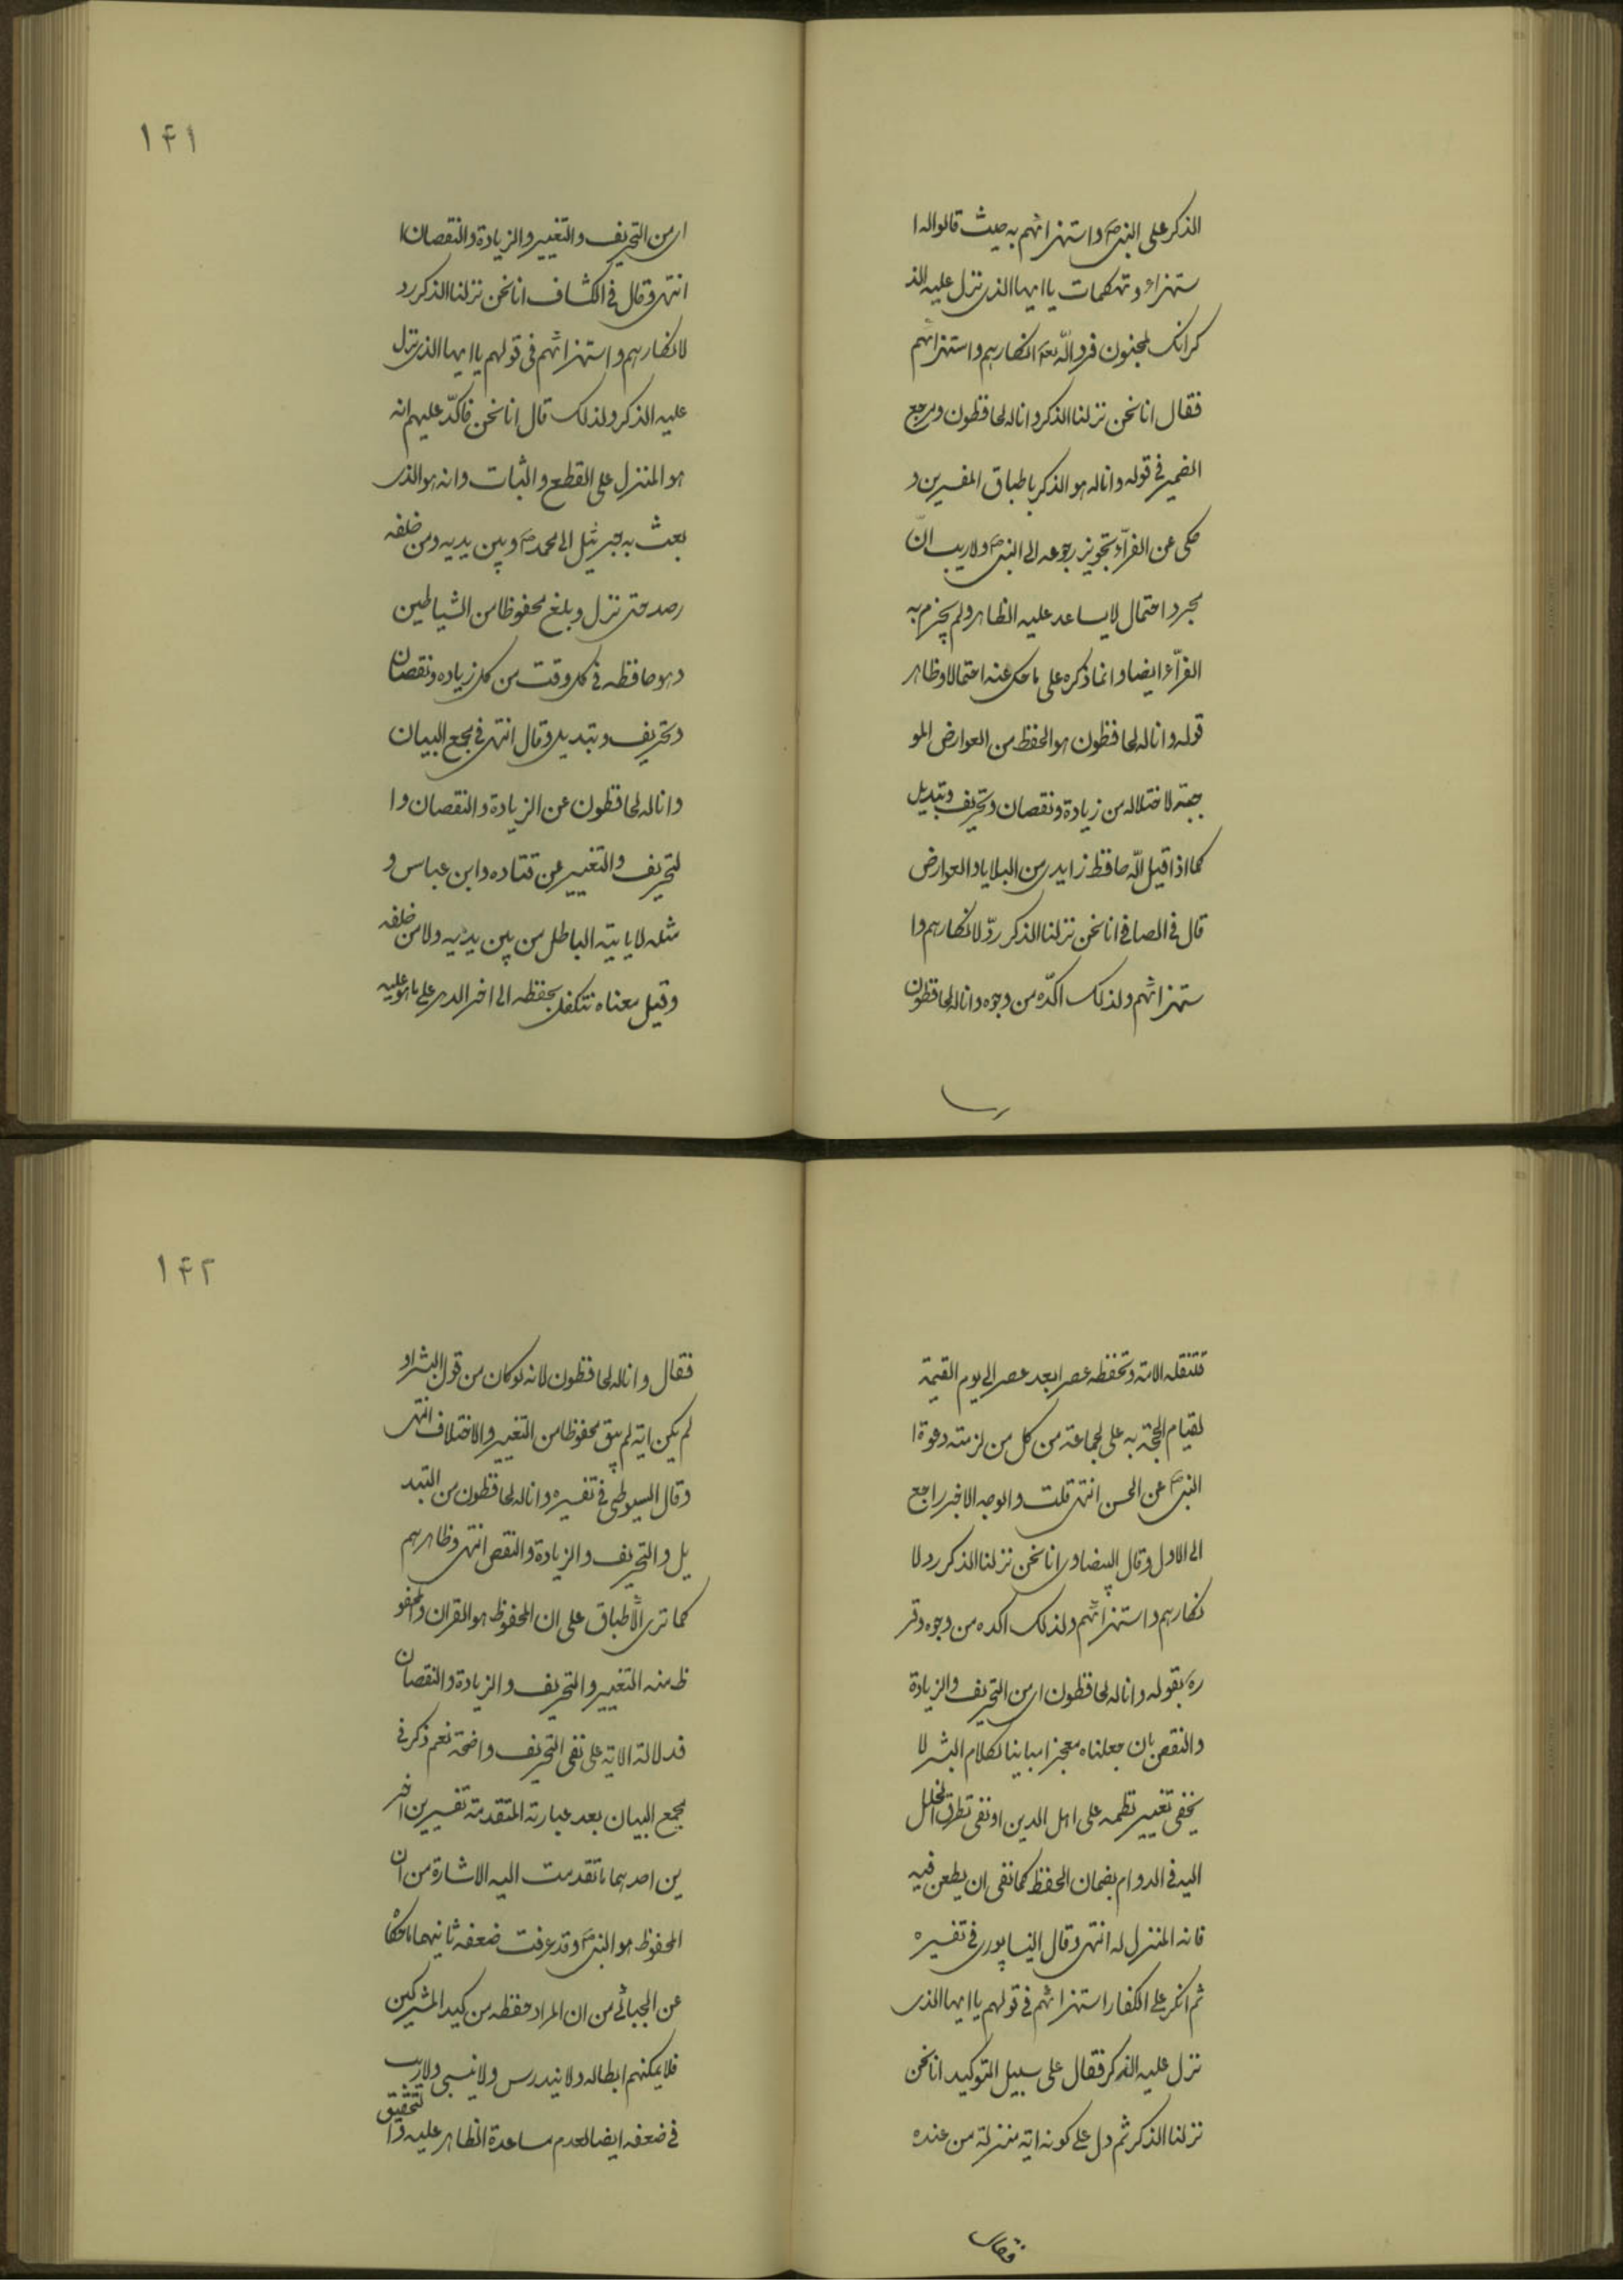 الذكر على النبي ص واستهزائهم به حيث قالوا له ا
ستهزاء وتهكمات يا ايها الذي نزل عليه الذ
كر انك لمجنون فرد الله تعالى انكارهم واستهزائهم
فقال انا نحن نزلنا الذكر وانا له لحافظون ومرجع
الضمير في قوله وانا له هو الذكر باطباق المفسرين و
حكى عن الفرّاء تجويز رجوعه الى النبي ص ولا ريب انّ
مجرد احتمال لا يساعد عليه الظاهر ولم يجزم به
الفرّاء ايضا وانما ذكره على ما حكى عنه احتمالا وظاهر
قوله وانا له لحافظون هو الحفظ من العوارض المو
جبة لاختلاله من زيادة ونقصان وتحريف وتبديل
كما اذا قيل الله حافظ زايد من البلايا والعوارض
قال في الصافي انا نحن نزلنا الذكر ردّ لانكارهم وا
ستهزائهم ولذلك اكّده من وجوه وانا له لحافظون
١۴١
اى من التحريف والتغيير والزيادة والنقصان
انتهى وقال في الكشاف انا نحن نزلنا الذكر رد
لانكارهم واستهزائهم في قولهم يا ايها الذي نزل
عليه الذكر ولذلك قال انا نحن فاكّد عليهم انه
هو المنزل على القطع والثبات وانه هو الذى
بعث به جبرئيل الى محمد ص وبين يديه ومن خلفه
رصد حتى نزل وبلغ محفوظا من الشياطين
وهو حافظه في كل وقت من كل زياده ونقصان
وتحريف وتبديل وقال انتهى في مجمع البيان
وانا له لحافظون عن الزيادة والنقصان وا
لتحريف والتغيير عن قتاده وابن عباس و
مثله لا ياتيه الباطل من بين يديه ولا من خلفه
وقيل معناه نتكفل بحفظه الى اخر الدهر على ما هو عليه
فتنقله الامة وتحفظه عصرا بعد عصر الى يوم القيمة
لقيام الحجة به على لجماعة من كل من لزمته دعوة ا
النبي ص عن الحسن انتهى قلت والوجه الاخير راجع
الى الاول وقال البيضاوى انا نحن نزلنا الذكر رد لا
نكارهم واستهزائهم ولذلك اكده من وجوه وقر
ره بقوله وانا له لحافظون اى من التحريف والزيادة
والنقص بان جعلناه معجزا مباينا لكلام البشر لا
يخفى تغيير نظمه على اهل الدين او نفى تطرق الخلل
اليه في الدوام بضمان الحفظ كما نفى ان يطعن فيه
فانه المنزل له انتهى وقال النيسابورى في تفسيره
ثم انكر على الكفار استهزائهم في قولهم يا ايها الذى
نزل عليه الذكر فقال على سبيل التوكيد انا نحن
نزلنا الذكر ثم دل على كونه اية منزلة من عنده
فقال
١۴٢
فقال وانا له لحافظون لانه لو كان من قول البشر او
لم يكن اية لم يبق محفوظا من التغيير والاختلاف انتهى
وقال السيوطي في تفسيره وانا له لحافظون من التبد
يل والتحريف والزيادة والنقص انتهى وظاهرهم
كما ترى الاطباق على ان المحفوظ هو القران والمحفو
ظ منه التغيير والتحريف والزيادة والنقصان
فدلالة الاية على نفى التحريف واضحة نعم ذكر في
مجمع البيان بعد عبارته المتقدمة تفسيرين اخر
ين احدهما ما تقدمت اليه الاشارة من ان
المحفوظ هو النبي ص وقد عرفت ضعفه ثانيهما ما حكا
عن الجبائي من ان المراد حفظه من كيد المشركين
فلا يمكنهم ابطاله ولا يندرس ولا ينسى ولا ريب
في ضعفه ايضا لعدم مساعدة الظاهر عليه والتحقيق